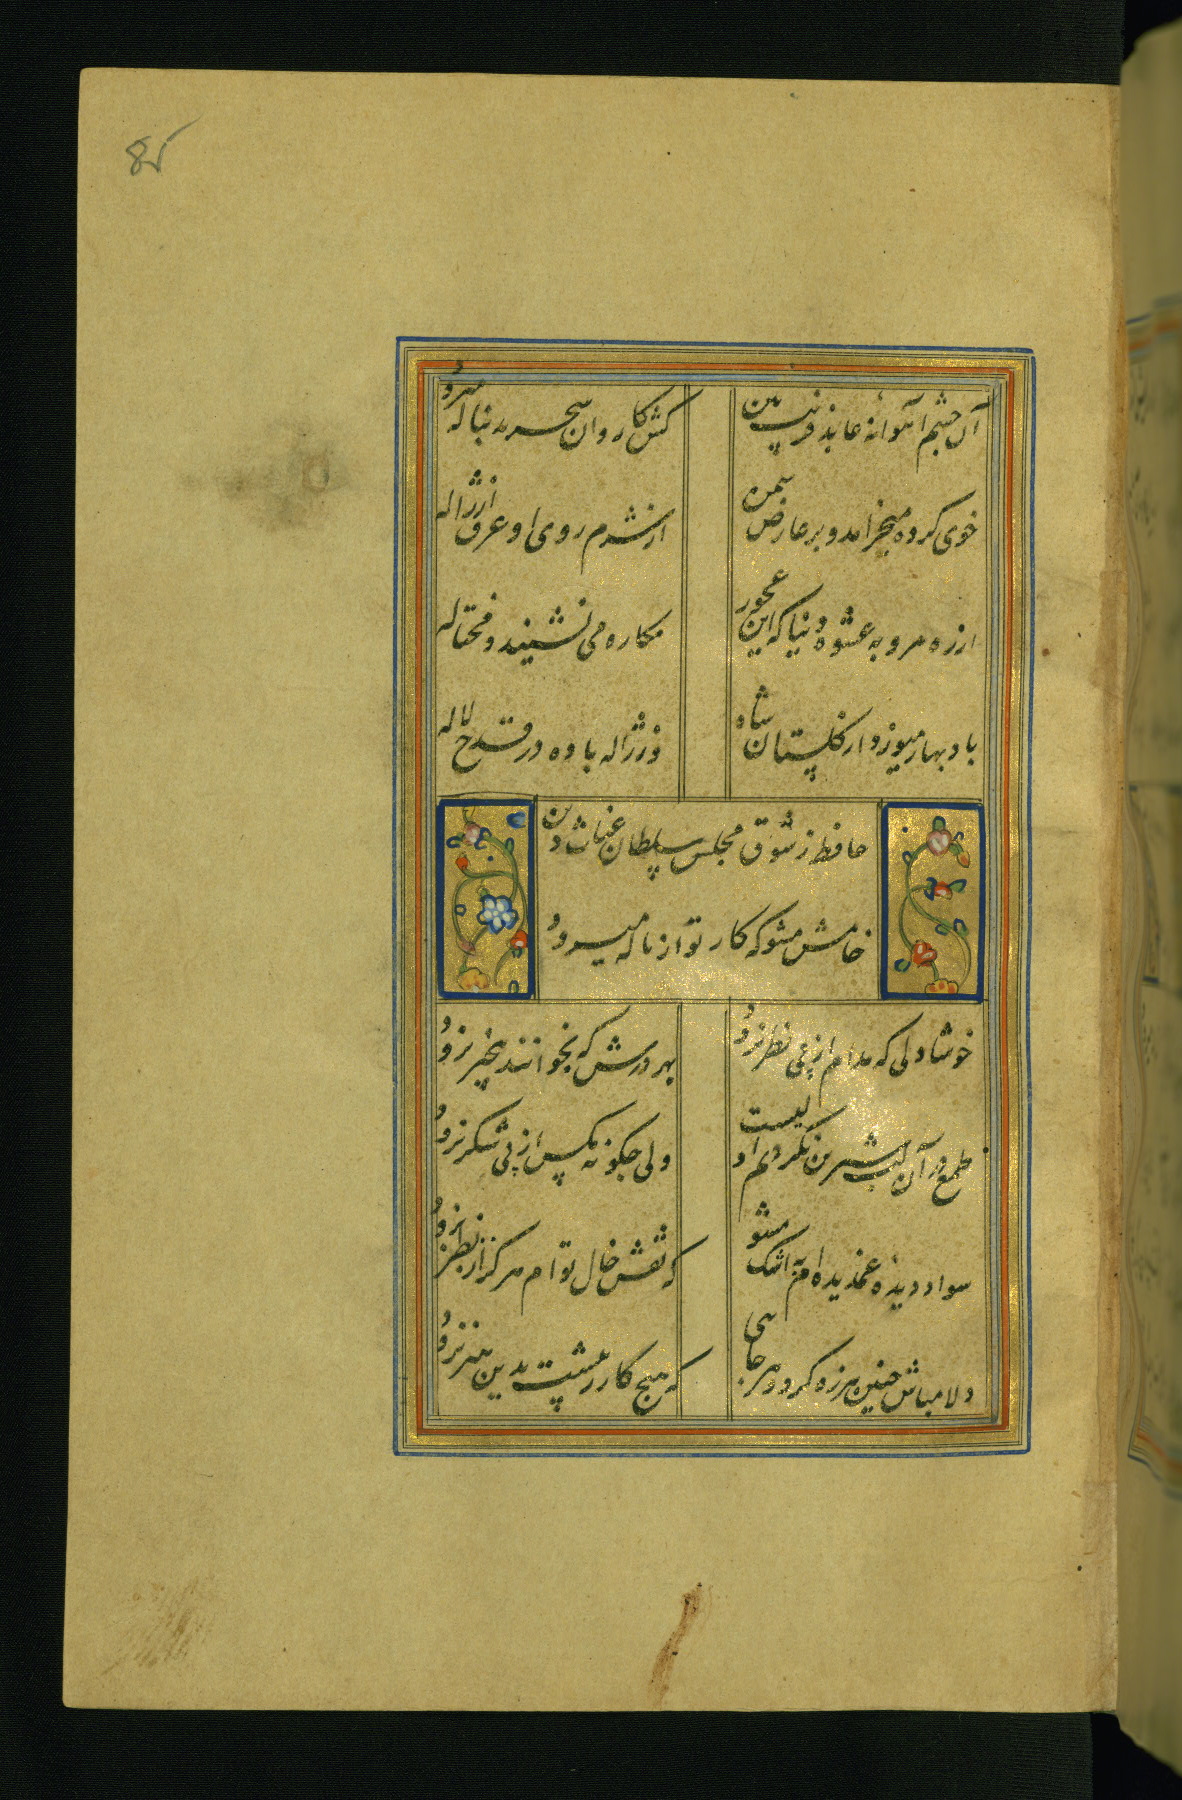 85
آن چشم آهوانه عابد فریب بین
کش کاروان سحر به دنباله میرود
خوی کرده میخرامد و بر عارض سمن
از شرم روی او عرق از ژاله
از ره مرو به عشوه دنیا که این عجوز
مکاره می نشیند و محتاله
باد بهار میوزد از گلستان شاه
وز ژاله باده در قدح لاله
حافظ ز شوق مجلس سلطان غیاث دین
خامش مشو که کار تو از ناله میرود
خوشا دلی که مدام از پی نظر نرود
بهر درش که بخوانند بیخبر نرود
طمع در آن لب شیرین نکردنم اولیست
ولی چگونه مگس از پی شکر نرود
سواد دیده غمدیده ام به اشک مشو
که نقش خال توام هرگز از نظر نرود
دلا مباش چنین هرزه گرد و هرجایی
که هیچ کار ز پیشت بدین هنر نرود